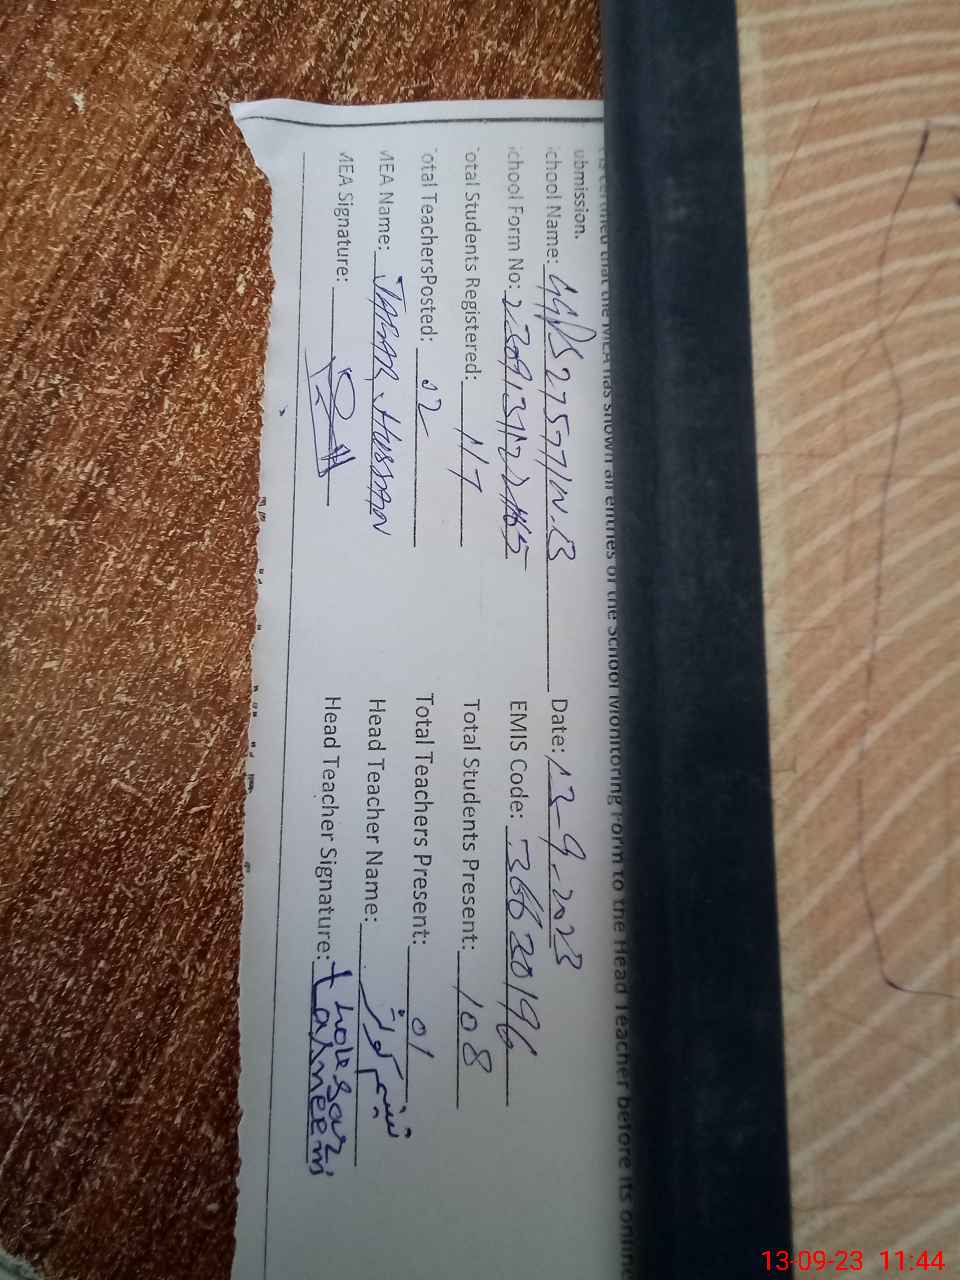 is certified that the MEA has shown all entries of the School Monitoring Form to the Head Teacher before its online
ubmission.
chool Name: GGPS 275771W.B Date: 13-9-2023
chool Form No: EMIS Code: 36620196
otal Students Registered: 117 Total Students Present: 108
otal TeachersPosted: 02 Total Teachers Present: 01
MEA Name: JAFAR HUSSAN Head Teacher Name: شمیم کوثر
MEA Signature: Head Teacher Signature:
13-09-23 11:44